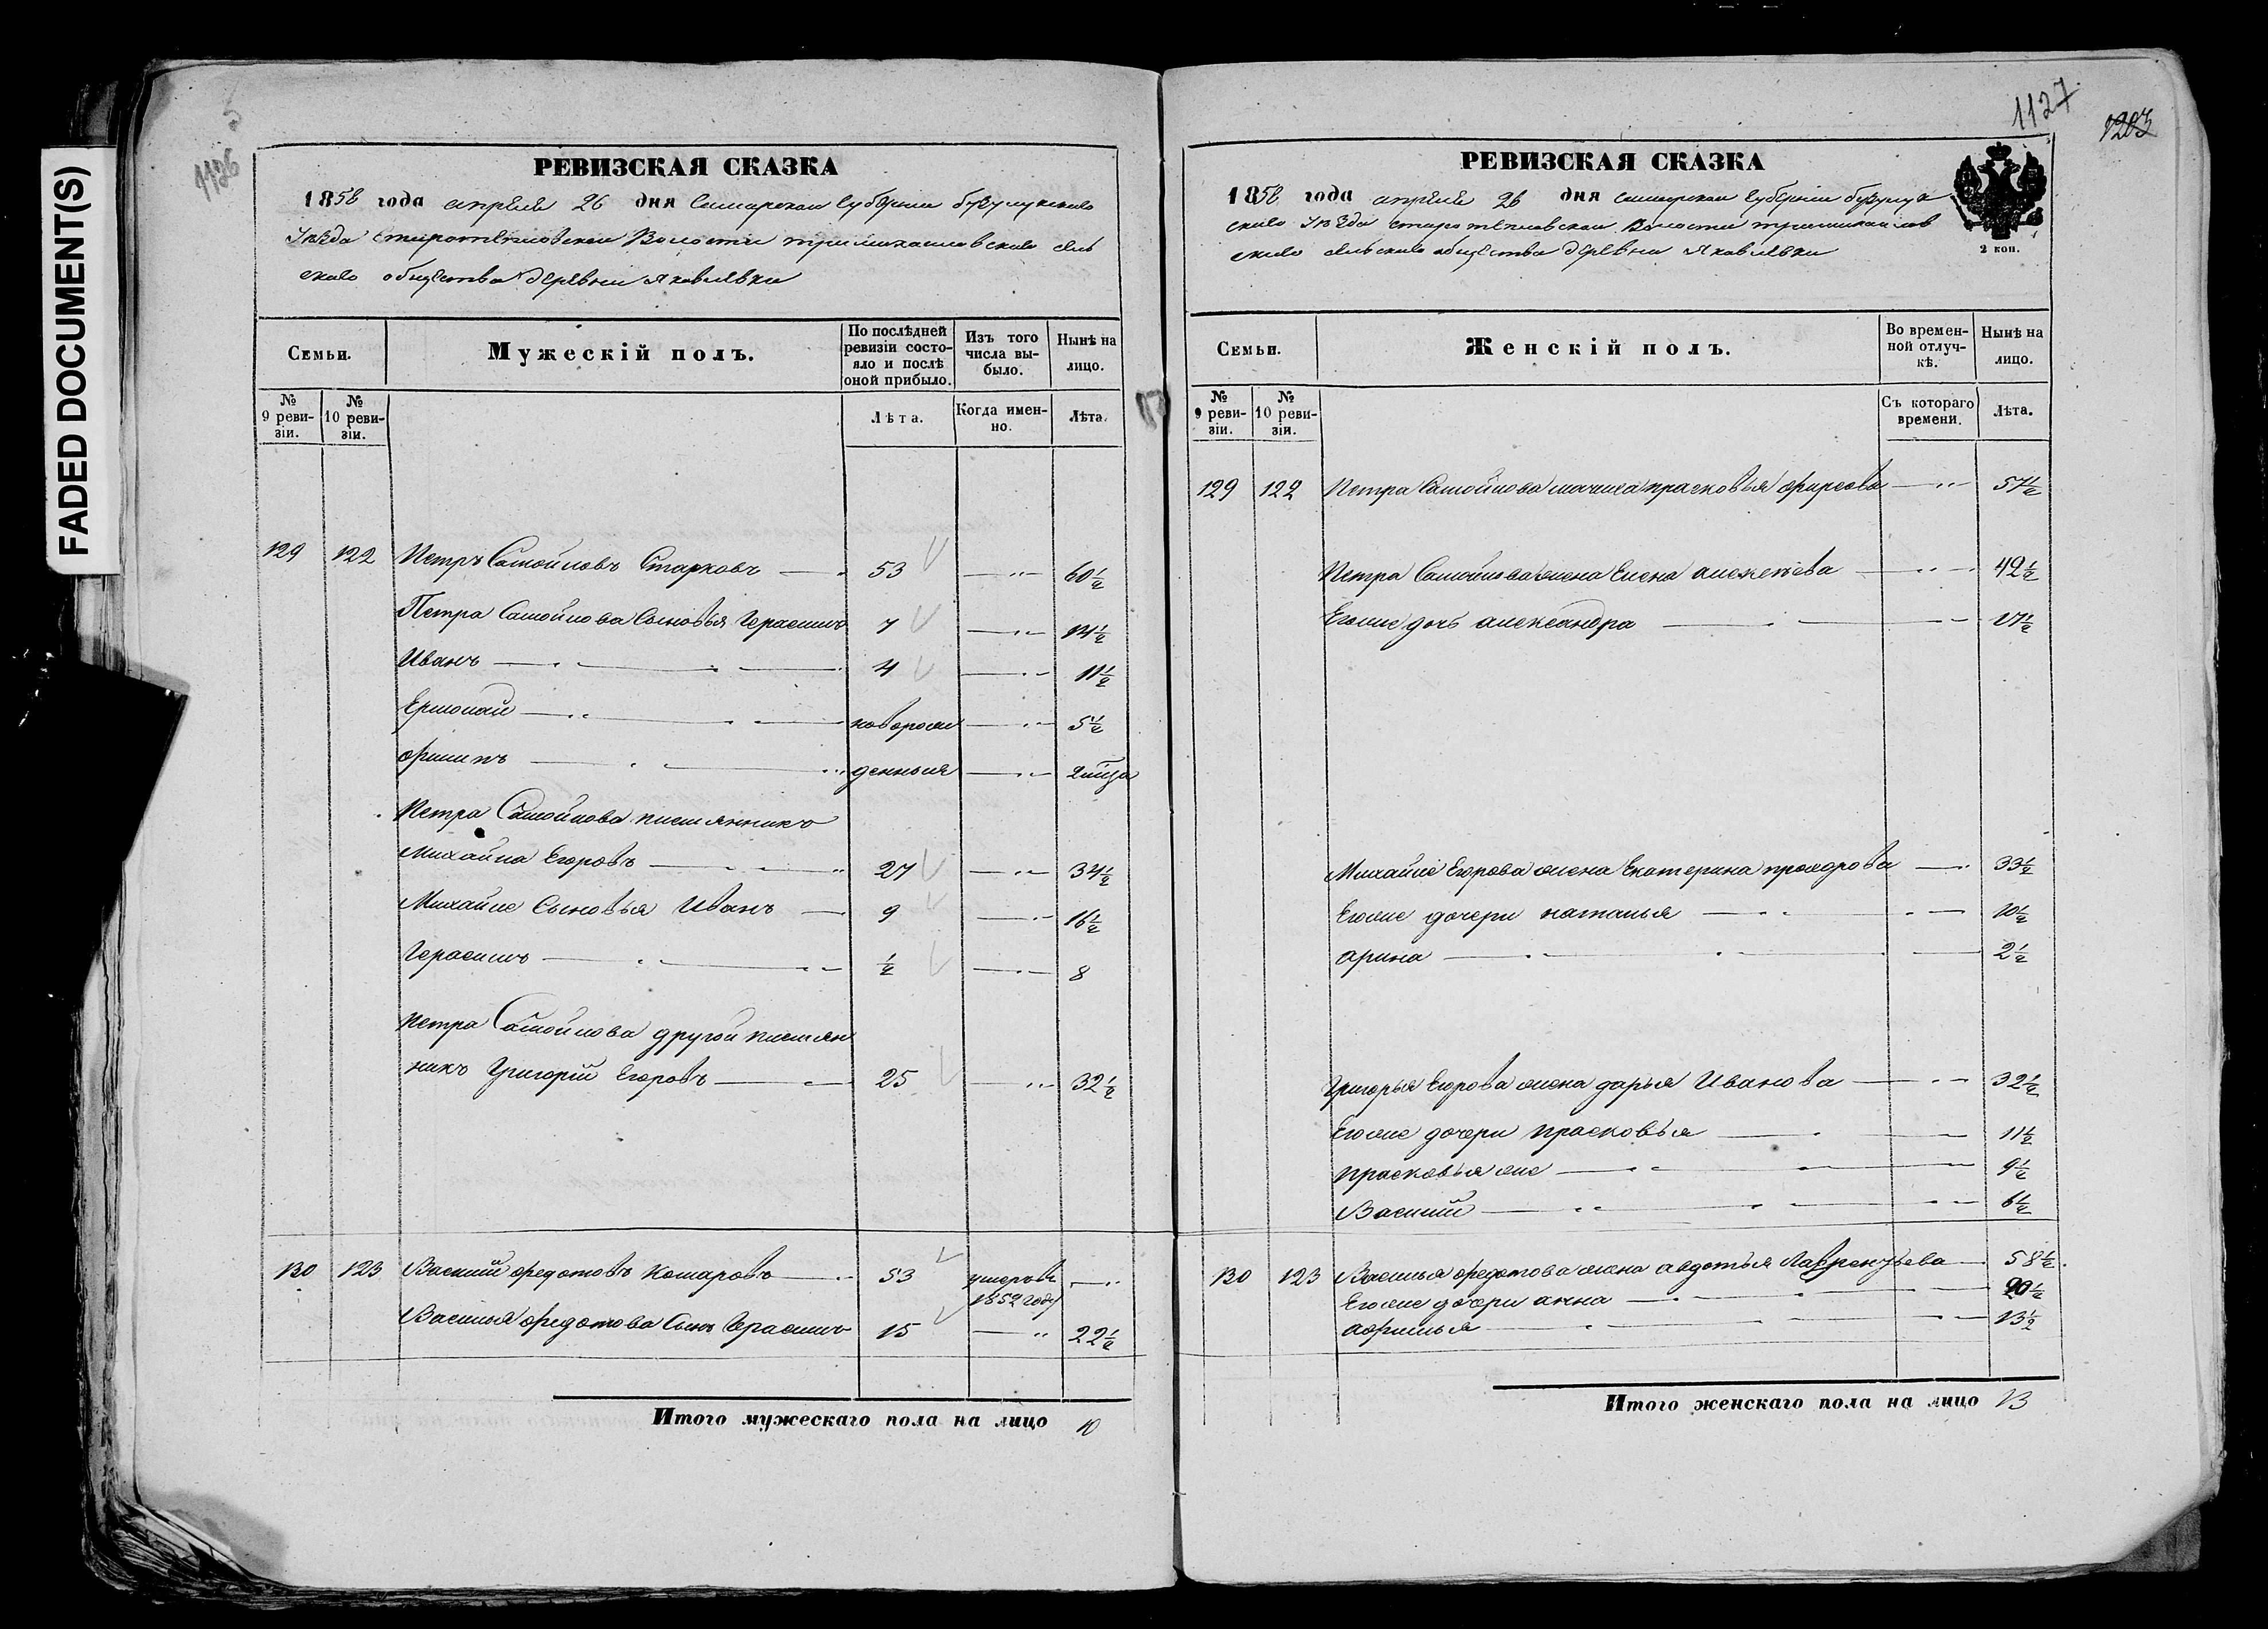 FADED DOCUMENT(S)
1126
РЕВИЗСКАЯ СКАЗКА
1858 года апреля 26 дня Самарской Губернии бузулукскаго
Уезда Волости сель
скаго общества деревни Яковлевки
Семьи.
Мужескій полъ.
По послѣдней ревизіи состояло и послѣ оной прибыло.
Изъ того числа выбыло.
Нынѣ на лицо.
№ 9 ревизіи.
№ 10 ревизіи.
Лѣта.
Когда именно.
Лѣта.
129 122 Петръ Самойловъ Старковъ 53 60½
Петра Самойлова Сыновья Герасимъ 7 14½
Иванъ 4 11½
Ермолай новорож 5½
Филипъ денныя
Петра Самойлова племянникъ
Михайла Егоровъ 27 34½
Михайле Сыновья Иванъ 9 16½
Герасимъ ½ 8
Петра Самойлова другой племян
никъ Григорій Егоровъ 25 32½
130 123 Василий Федотовъ Комаровъ 53 умеръ в 1852 году
Василья Федотова Сынъ Герасимъ 15 22½
Итого мужескаго пола на лицо 10
1127
1203
РЕВИЗСКАЯ СКАЗКА
1858 года апреля 26 дня Самарской Губернии бузулук
скаго Уезда Волости
скаго сельскаго общества деревни Яковлевки
2 коп.
Семьи.
Женскій полъ.
Во временной отлучкѣ.
Нынѣ на лицо.
№ 9 ревизіи.
№ 10 ревизіи.
Съ котораго времени.
Лѣта.
129 122 Петра Самойлова мачиха прасковья фирсова 57½
Петра Самойлова жена Елена алексеева 42½
Егоже дочь александра 17½
Михайле Егорова жена Екатерина прохорова 33½
Егоже дочери наталья 10½
арина 2½
Григорья Егорова жена дарья Иванова 32½
Егоже дочери прасковья 11½
прасковья же 9½
6½
130 123 Василья федотова жена авдотья Лаврентьева 58½
Егоже дочери анна 20½
афимья 13½
Итого женскаго пола на лицо 13